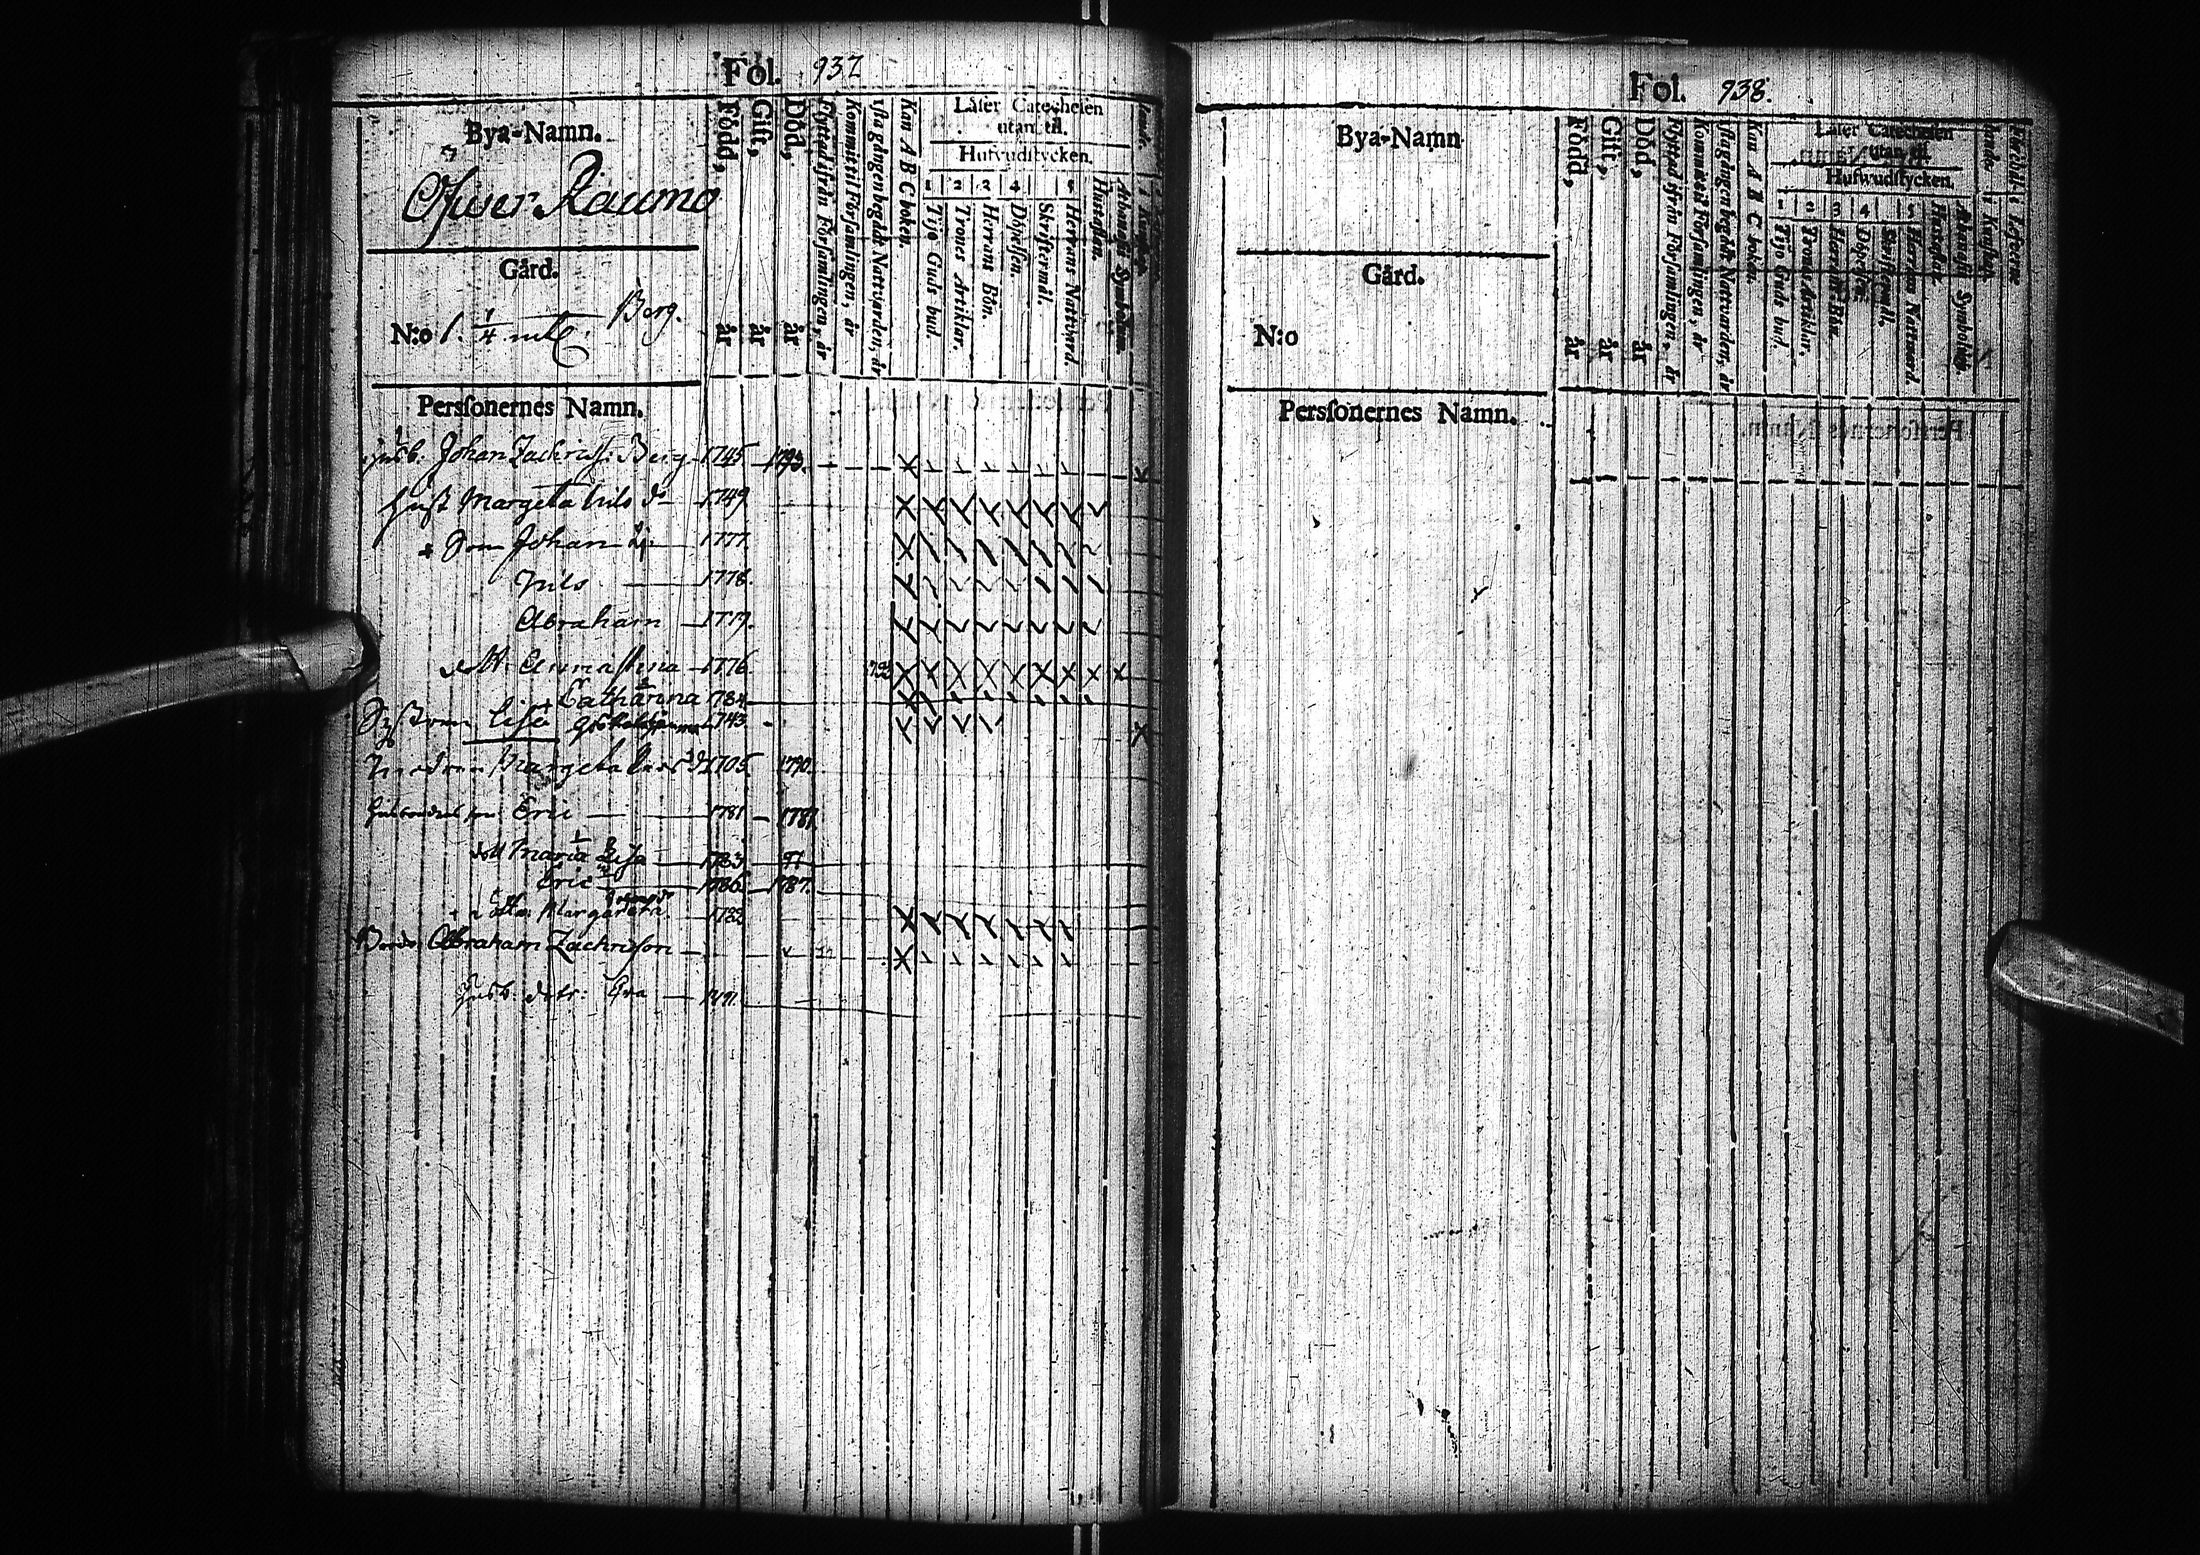 Fol. 937
Bya-Namn.
Öfwer Raumo
Gård.
N:o 1. 1/4 mtl. Berg.
Personernes Namn.
Född, år
Gift, år
Död, år
Flyttad ifrån Församlingen, år
Kommit til Församlingen, år
1sta gången begådt Nattvarden, år
Kan A B C boken.
Läser Catechesen
utan til.
Hufvudstycken.
1 Tijo Gudz bud.
2 Trones Artiklar.
3 Herrans Bön.
4 Döpelsen.
Skriftermål.
5 Herrans Nattvard.
Hustaflan.
Athanasii Symbolum.
Husb. Johan Zachriss. Berg 1745 1793.
Hust Margeta Nils dr 1749
Son Johan 1777.
Nils 1778.
Abraham 1779.
dtr. Anna Stina 1776. 792
Catharina 1784.
Systren Lisa 1743
Modren Margeta Lars dr 1705. 1790.
Husbondens son Eric 1781 1781.
dtr Maria Lisa 1783 97
Eric 1786 1787.
Margareta 1788
Brodr Abraham Zachrisson
Husb. dotr: Eva 1791.
Fol. 938.
Bya-Namn
Gård.
N:o
Personernes Namn.
Född, år
Gift, år
Död, år
Flyttad ifrån Församlingen, år
Kommit til Församlingen, år
1sta gången begådt Nattvarden, år
Kan A B C boken.
Läser Catechesen
utan til.
Hufwudstycken.
1 Tijo Gudz bud.
2 Trones Artiklar.
3 Herrans Bön.
4 Döpelsen.
Skriftermål.
5 Herrans Nattvard.
Hustaflan.
Athanasii Symbolum.